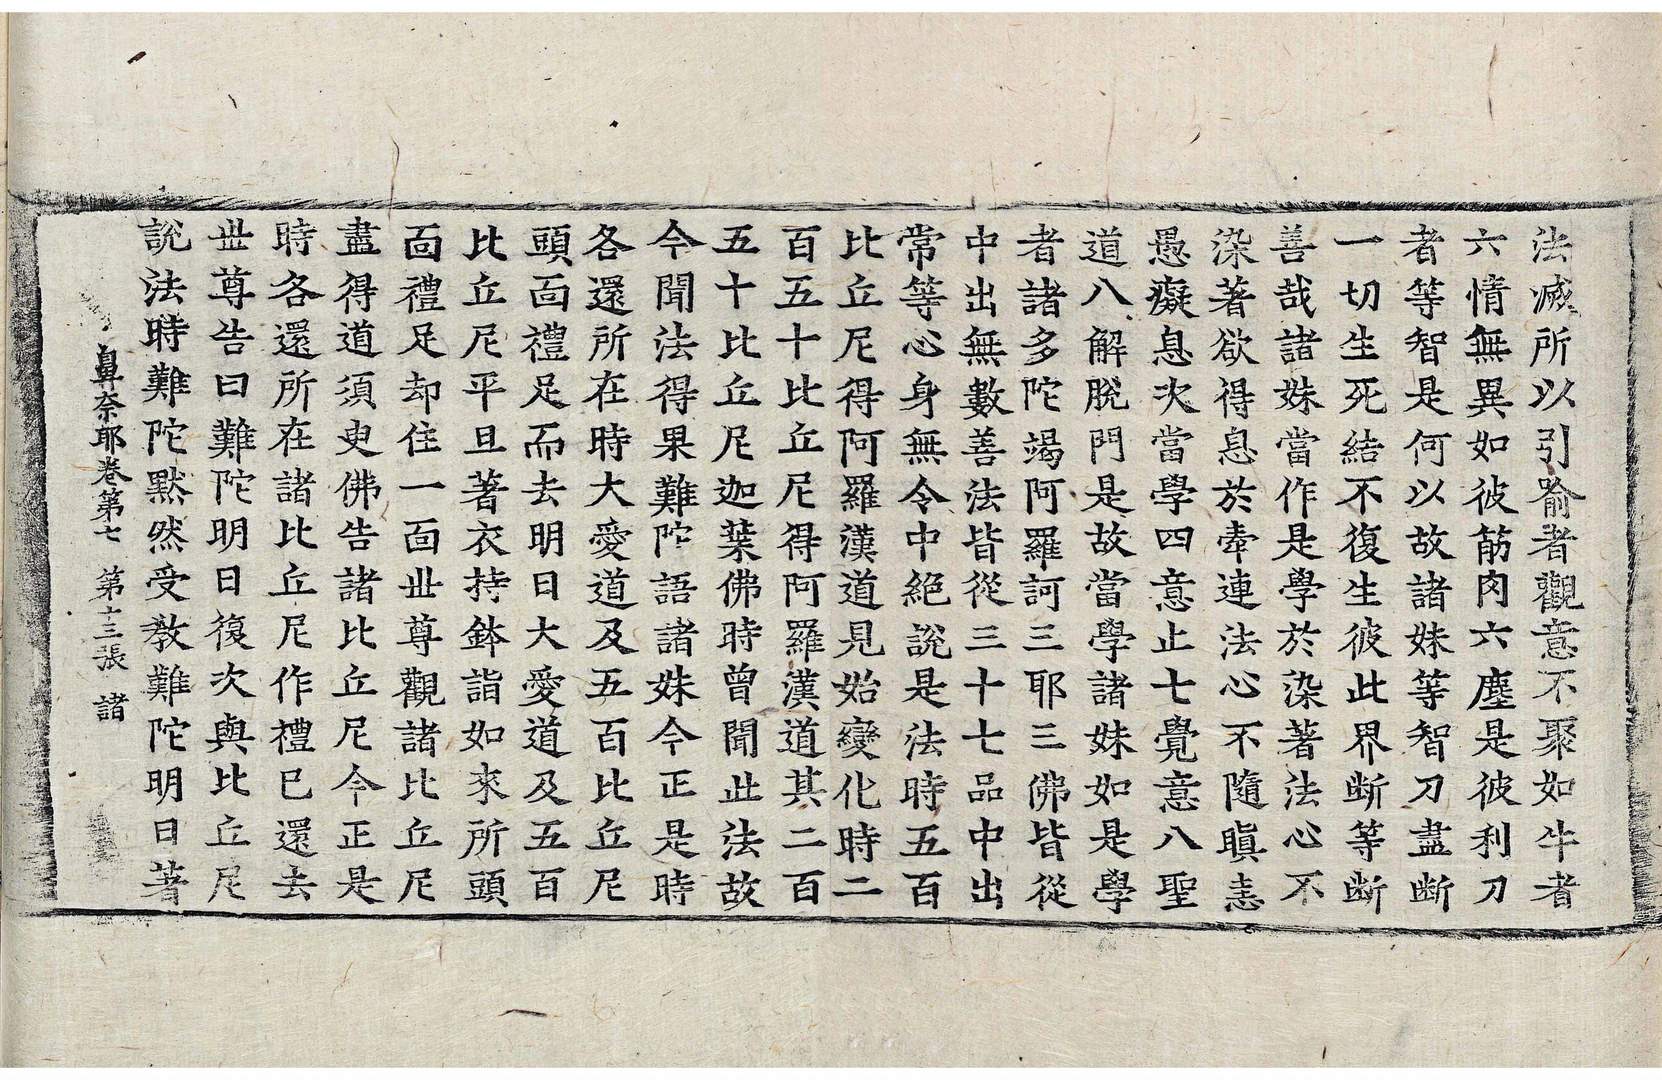 法滅所以引喻者觀意不聚如牛者
六情無異如彼筋肉六塵是彼利刀
者等智是何以故諸妹等智刀盡断
一切生死結不復生彼此界断等断
善哉諸妹當作是學於染著法心不
染著欲得息於牽連法心不隨瞋恚
愚癡息次當學四意止七覺意八聖
道八解脫門是故當學諸妹如是學
者諸多陀竭阿羅訶三耶三佛皆從
中出無數善法皆從三十七品中出
常等心身無令中絕說是法時五百
比丘尼得阿羅漢道見始變化時二
百五十比丘尼得阿羅漢道其二百
五十比丘尼迦葉佛時曾聞此法故
今聞法得果難陀語諸妹今正是時
各還所在時大愛道及五百比丘尼
頭面禮足而去明日大愛道及五百
比丘尼平旦著衣持鉢詣如來所頭
面禮足却住一面世尊觀諸比丘尼
盡得道須臾佛告諸比丘尼今正是
時各還所在諸比丘尼作禮已還去
世尊告曰難陀明日復次與比丘尼
說法時難陀默然受教難陀明日著
鼻奈耶卷第七 第十三張 諸